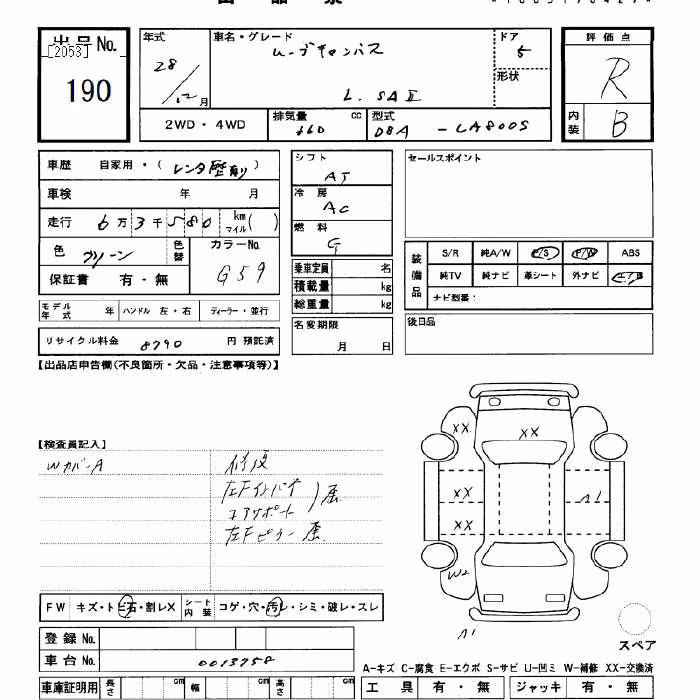 出品No.
[2053]
190
年式
28/12月
車名・グレード
ムーブキャンバス
L.SAⅡ
ドア
5
形状
評価点
R
内装
B
2WD・4WD
排気量 660 cc
型式 DBA - LA800S
車歴 自家用・(レンタ歴有り)
車検 年 月
走行 6万3千580 km マイル( )
色 グリーン
色替
カラーNo.
G59
保証書 有・無
モデル年式 年 ハンドル 左・右 ディーラー・並行
リサイクル料金 8790 円 預託済
シフト
AT
冷房
AC
燃料
G
乗車定員 名
積載量 kg
総重量 kg
名変期限
月 日
セールスポイント
装備品
S/R 純A/W P/S P/W ABS
純TV 純ナビ 革シート 外ナビ ETC
ナビ型番:
後日品
【出品店申告欄(不良箇所・欠品・注意事項等)】
【検査員記入】
Wカバー A
修復
左Fインパネ
コアサポート 屈
左Fピラー 屈
XX
XX
XX
XX
A1
W2
A1
FW キズ・トビ石・割レX シート内装 コゲ・穴・汚レ・シミ・破レ・スレ
登録No.
車台No. 0013758
車庫証明用 長さ cm 幅 cm 高さ cm
スペア
A-キズ C-腐食 E-エクボ S-サビ U-凹ミ W-補修 XX-交換済
工具 有・無 ジャッキ 有・無